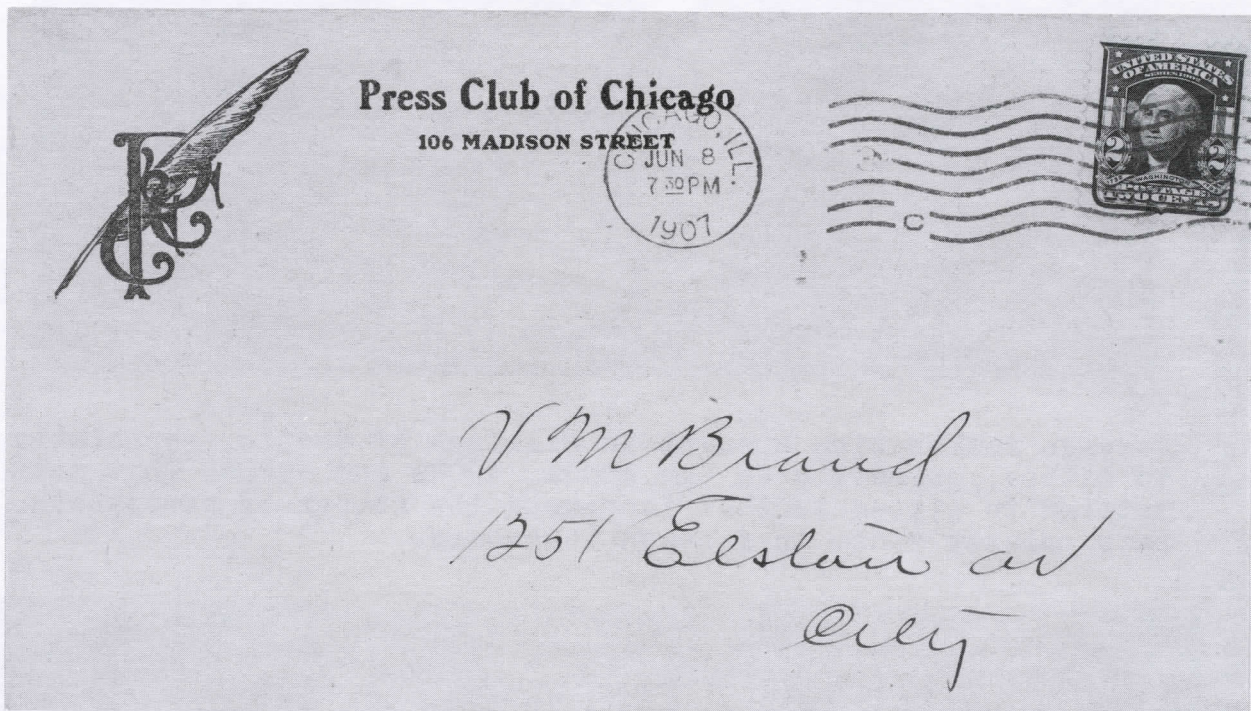 Press Club of Chicago
106 MADISON STREET
CHICAGO, ILL.
JUN 8
7 30 PM
1907
C
UNITED STATES
OF AMERICA
SERIES 1902
2 2
WASHINGTON
POSTAGE
TWO CENTS
V M Brand
1251 Elston av
City